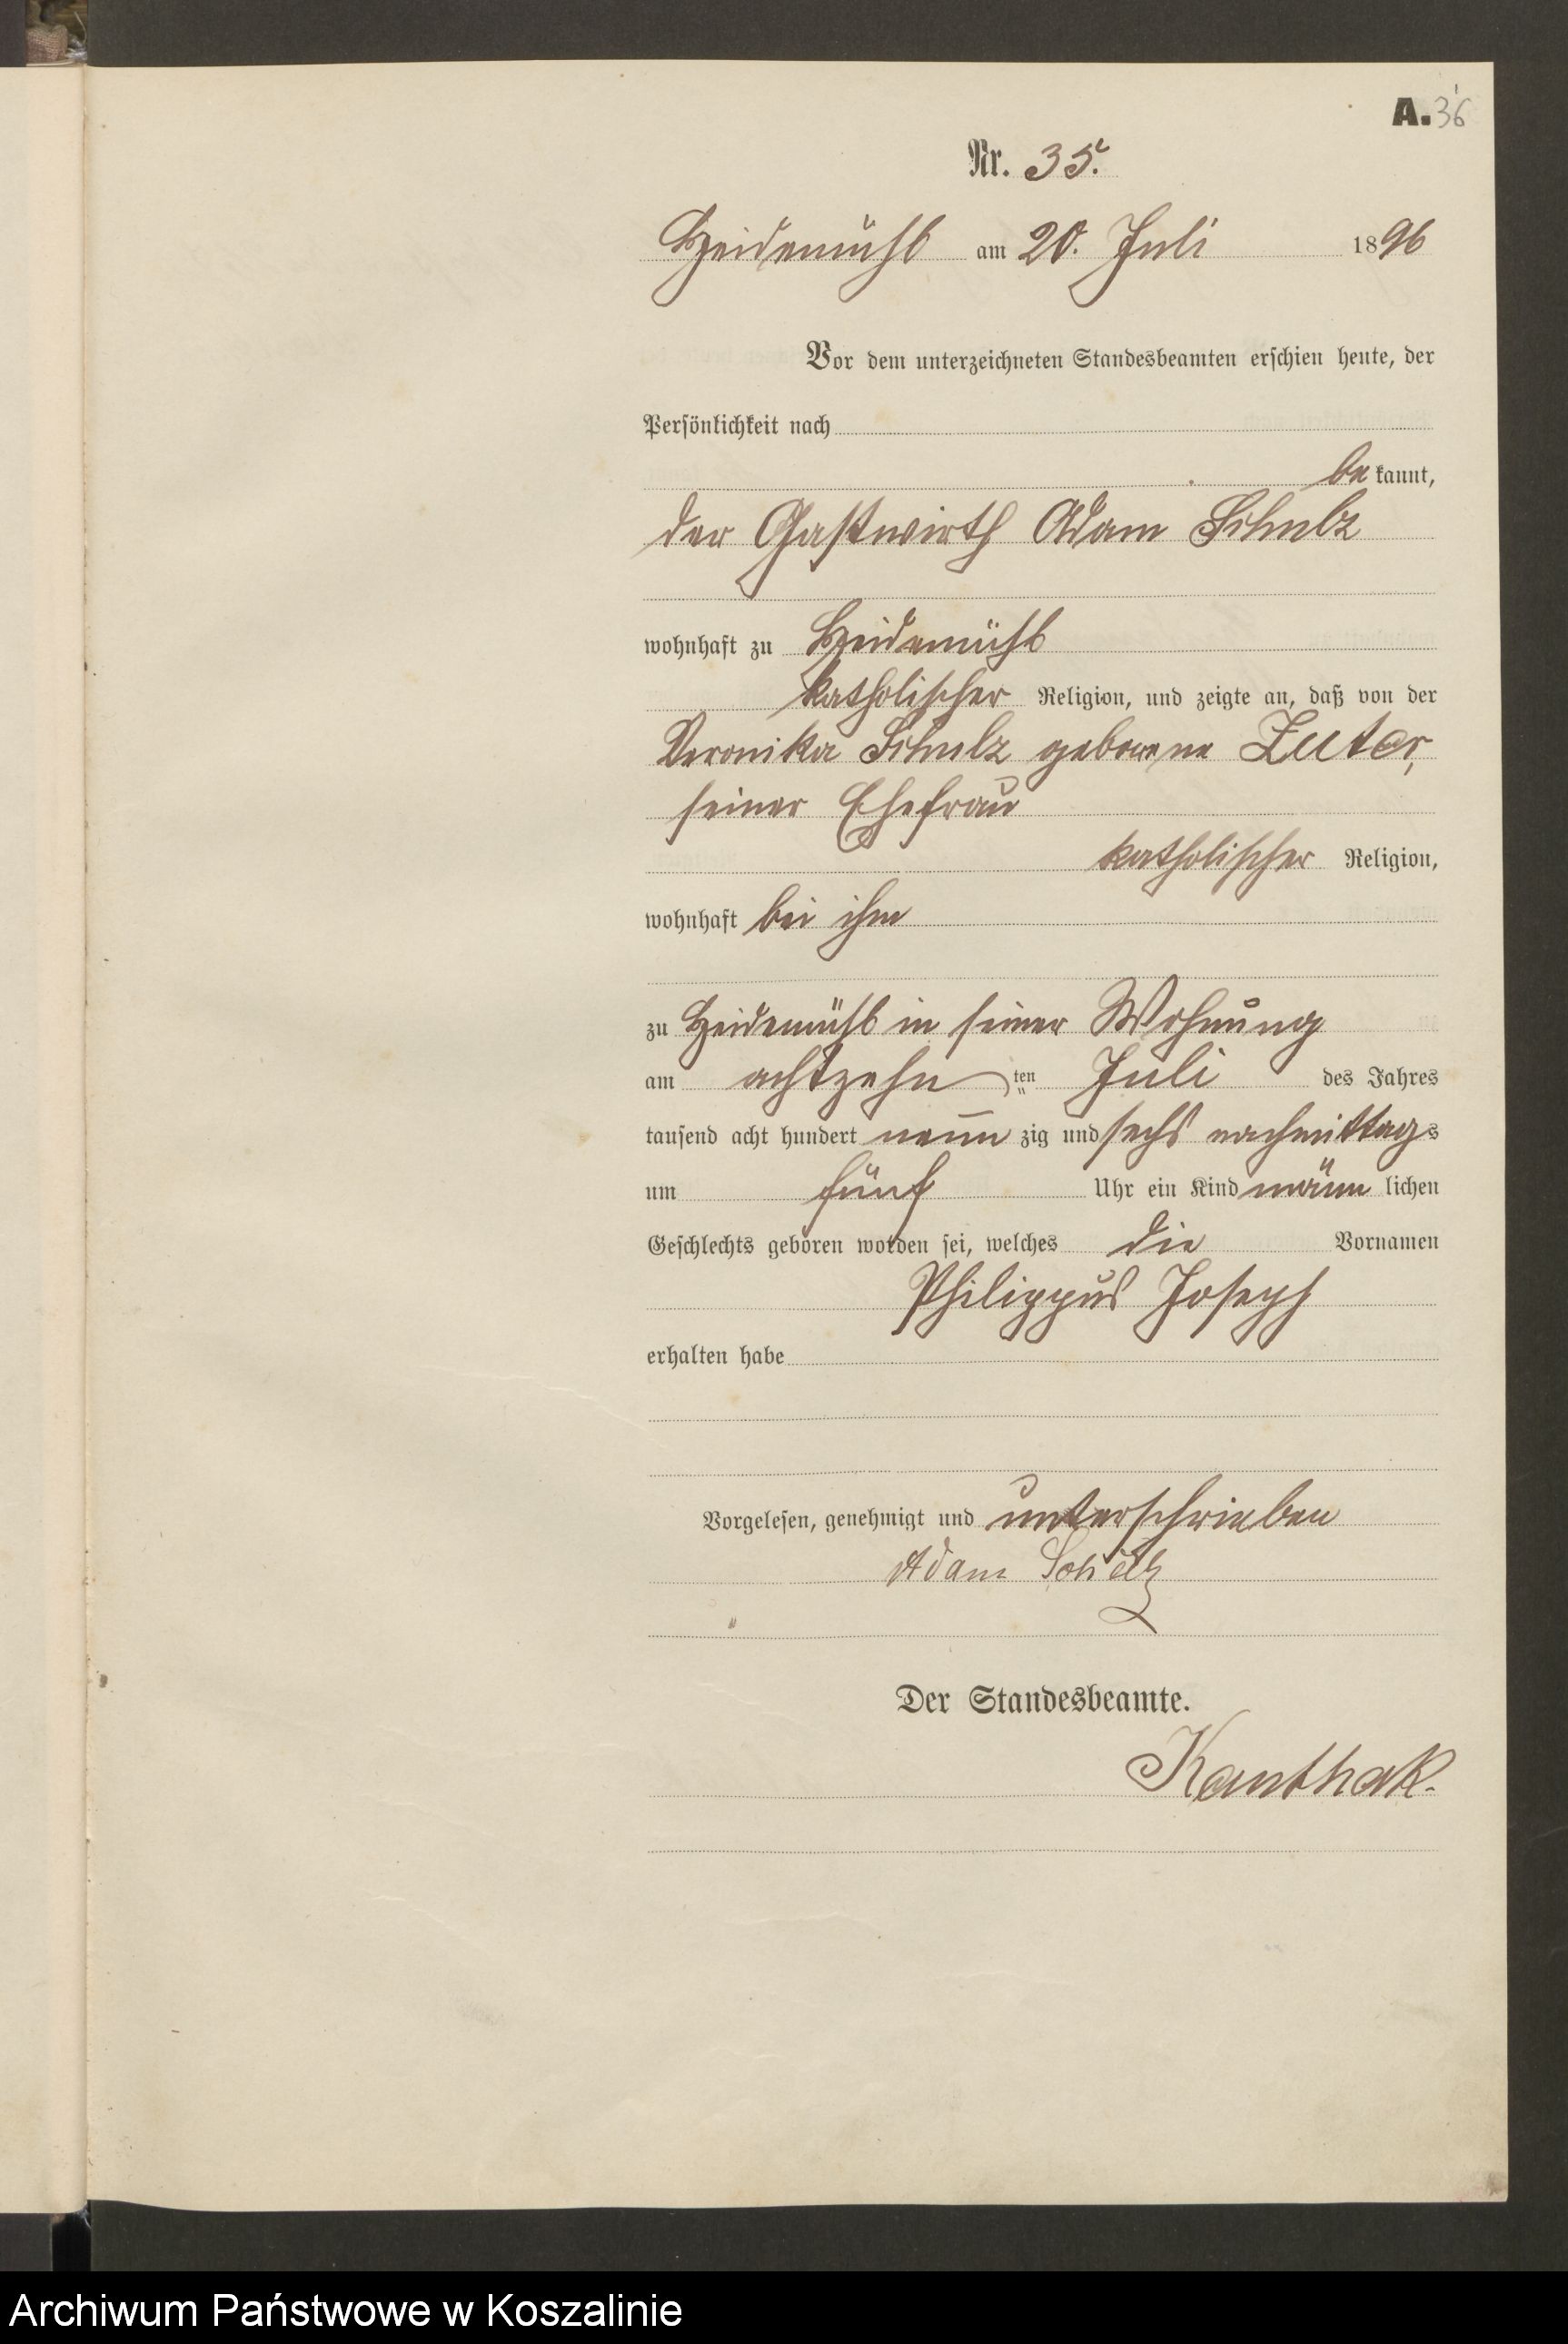 A. 36
Nr. 35.
Heidemühl am 20. Juli 1896
Vor dem unterzeichneten Standesbeamten erschien heute, der
Persönlichkeit nach
be kannt,
der Gastwirth Adam Schulz
wohnhaft zu Heidemühl
katholischer Religion, und zeigte an, daß von der
Veronika Schulz geborene Zutor,
seiner Ehefrau
katholischer Religion,
wohnhaft bei ihm
zu Heidemühl in seiner Wohnung
am achtzehn ten Juli des Jahres
tausend acht hundert neun zig und sechs nachmittags
um fünf Uhr ein Kind männ lichen
Geschlechts geboren worden sei, welches die Vornamen
Philippus Joseph
erhalten habe
Vorgelesen, genehmigt und unterschrieben
Adam Schulz
Der Standesbeamte.
Kanthak.
Archiwum Państwowe w Koszalinie